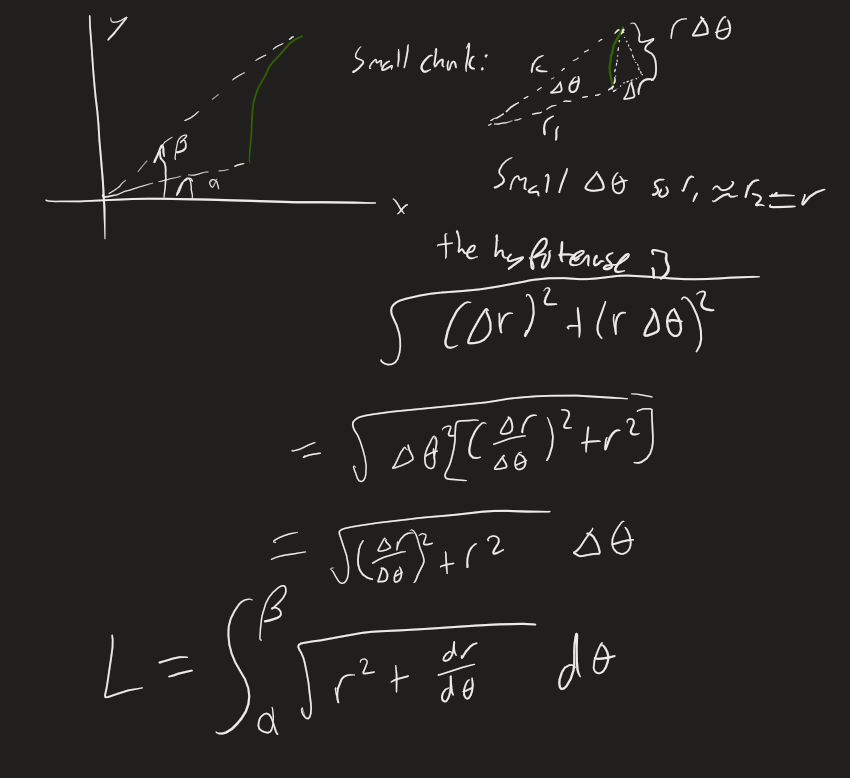 y
β
α
x
Small chunk:
r Δθ
Δθ
Δr
r₁
Small Δθ so r₁ ≈ r₂ = r
the hypotenuse is
√((Δr)² + (r Δθ)²)
= √(Δθ²[(Δr/Δθ)² + r²])
= √((Δr/Δθ)² + r²) Δθ
L = ∫_α^β √(r² + dr/dθ) dθ